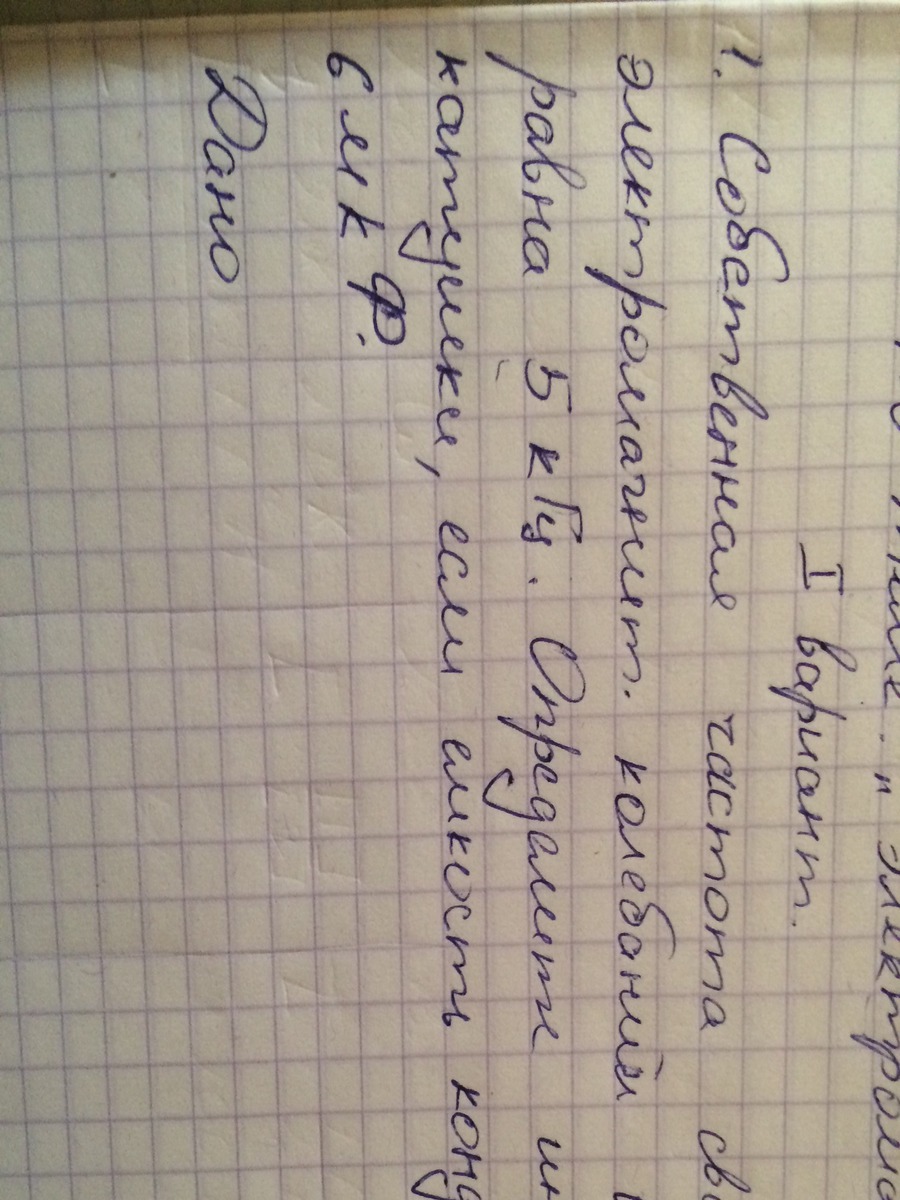 I вариант.
1. Собственная частота св
электромагнит. колебаний
равна 5 кГц. Определите ин
катушки, если емкость конд
6 мк Ф.
Дано